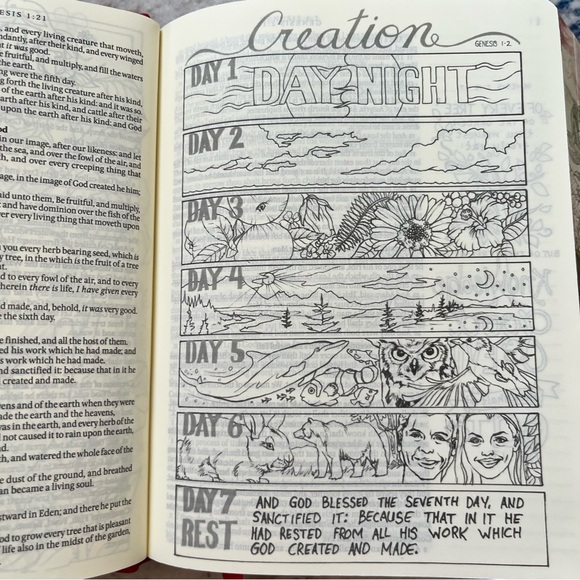 ESIS 1:21
, and every living creature that moveth,
ndantly, after their kind, and every winged
at it was good.
e fruitful, and multiply, and fill the waters
the earth.
ng were the fifth day.
g forth the living creature after his kind,
of the earth after his kind: and it was so.
arth after his kind, and cattle after their
upon the earth after his kind: and God
od
in our image, after our likeness: and let
the sea, and over the fowl of the air, and
h, and over every creeping thing that
age, in the image of God created he him;
aid unto them, Be fruitful, and multiply,
and have dominion over the fish of the
ver every living thing that moveth upon
you every herb bearing seed, which is
y tree, in the which is the fruit of a tree
at.
d to every fowl of the air, and to every
herein there is life, I have given every
ad made, and, behold, it was very good.
e the sixth day.
e finished, and all the host of them.
ed his work which he had made; and
s work which he had made.
nd sanctified it: because that in it he
created and made.
vens and of the earth when they were
ade the earth and the heavens,
was in the earth, and every herb of the
not caused it to rain upon the earth,
nd.
th, and watered the whole face of the
e dust of the ground, and breathed
an became a living soul.
stward in Eden; and there he put the
od to grow every tree that is pleasant
f life also in the midst of the garden,
Creation
GENESIS 1-2
DAY 1
DAY NIGHT
DAY 2
DAY 3
DAY 4
DAY 5
DAY 6
DAY 7
REST
AND GOD BLESSED THE SEVENTH DAY, AND
SANCTIFIED IT: BECAUSE THAT IN IT HE
HAD RESTED FROM ALL HIS WORK WHICH
GOD CREATED AND MADE.